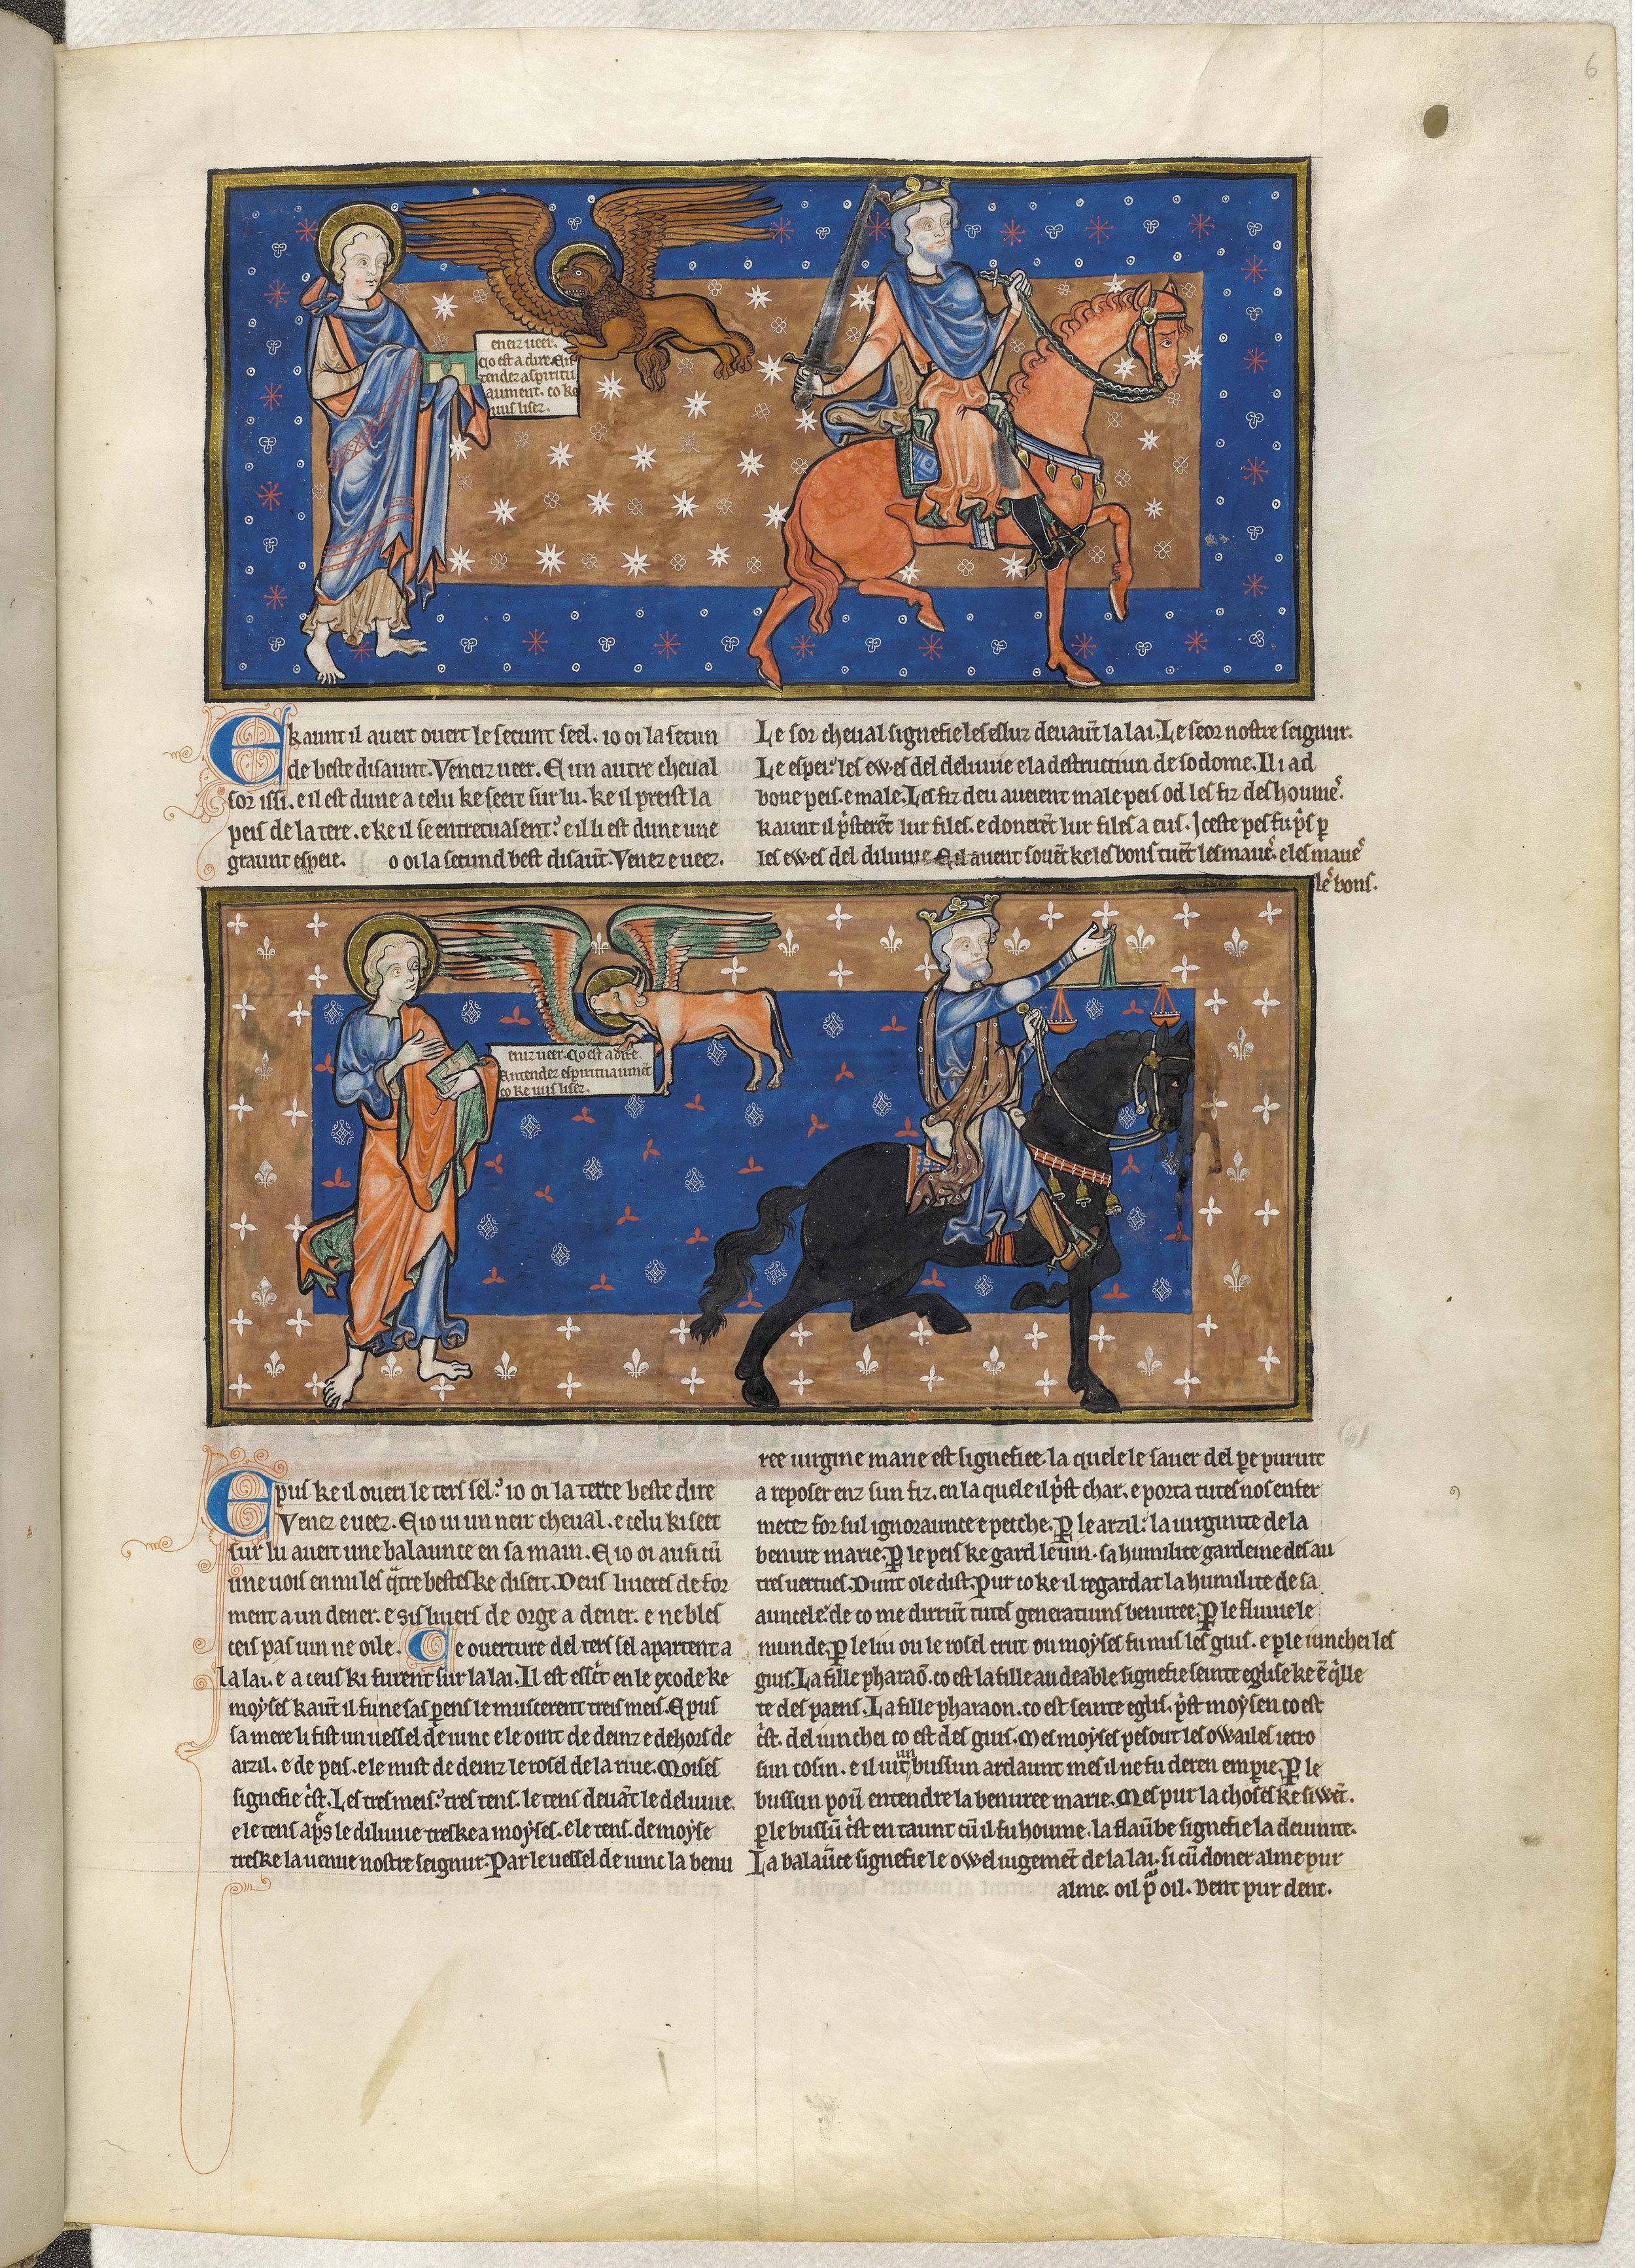 6
eneiz ueer.
Co est a dire. En
tendez aspiritu
aument. co ke
uus lisez.
E kaunt il aueit ouert le secunt seel. io oi la secun
de beste disaunt. Veneiz ueer. E un autre cheual
sor issi. e il est dune a celu ke seeit sur lu. ke il preist la
peis de la tere. e ke il se entretuasent. e il li est dune une
graunt espeie. o oi la secund best disaūt. Venez e ueez.
Le sor cheual signefie les esluz deuaūt la lai. Le seor nostre seignur.
Le espei. les ewes del deluuie e la destructiun de sodome. Il i ad
bone peis. e male. Les fiz deu aueient male peis od les fiz des houmes.
kaunt il p̄sterēt lur files. e donerēt lur files a eus. Iceste pes fu p̄s p
les ewes del diluuie E il auent souēt ke les bons tuēt les maues. e les maues
les bons.
eniz ueer. Co est a dire.
Antendez espirituaumēt
co ke uus lisez.
E pus ke il oueri le ters sel. io oi la terce beste dire
Venez e ueez. E io ui un neir cheual. e celu ki seet
sur lu aueit une balaunce en sa main. E io oi ausi cū
une uois en mi les q̄tre bestes ke diseit. Deus liueres de for
ment a un dener. e sis liuers de orge a dener. e ne bles
ceis pas uin ne oile. Ce ouerture del ters sel apartent a
la lai. e a ceus ki furent sur la lai. Il est escrit en le exode ke
moyses kaūt il fu ne sas pens le muscerent treis meis. E pus
sa mere li fist un uessel de iunc e le oint de deinz e dehors de
arzil. e de peis. e le mist de deinz le rosel de la riue. Moises
signefie c̄st. Les tres meis. tres tens. le tens deuāt le deluuie.
e le tens ap̄s le diluuie treske a moyses. e le tens. de moyse
treske la uenue nostre seignur. Par le uessel de iunc la benu
ree uirgine marie est signefiee. la quele le sauer del pe puruit
a reposer enz sun fiz. en la quele il p̄st char. e porta tutes nos enfer
metez for sul ignoraunce e pesche. P le arzil. la uirginite de la
benure marie. P le peis ke gard le uin. sa humilite gardeine des au
tres uertues. Dunt ole dist. Pur co ke il regardat la humilite de sa
auncele. de co me dirrūt tutes generatiuns benuree. P le fluuie le
munde. P le liu ou le rosel crut ou moyses fu mis les gius. e p le iunchei les
gius. La fille pharaō. co est la fille au deable signefie seinte eglise ke ē q̄lle
te des paens. La fille pharaon. co est seinte eglis. p̄st moysen co est
c̄st. del iunchei co est des gius. Mes moyses pesout les owailes ietro
sun cosin. e il uit un bussun ardaunt mes il ne fu de ren empire. P le
bussun poū entendre la benuree marie. Mes pur la choses ke siwēt.
p le bussū c̄st en taunt cū il fu houme. la flaūbe signefie la deuinite.
La balaūce signefie le owel iugemēt de la lai. si cū doner alme pur
alme. oil p̄ oil. Dent pur dent.